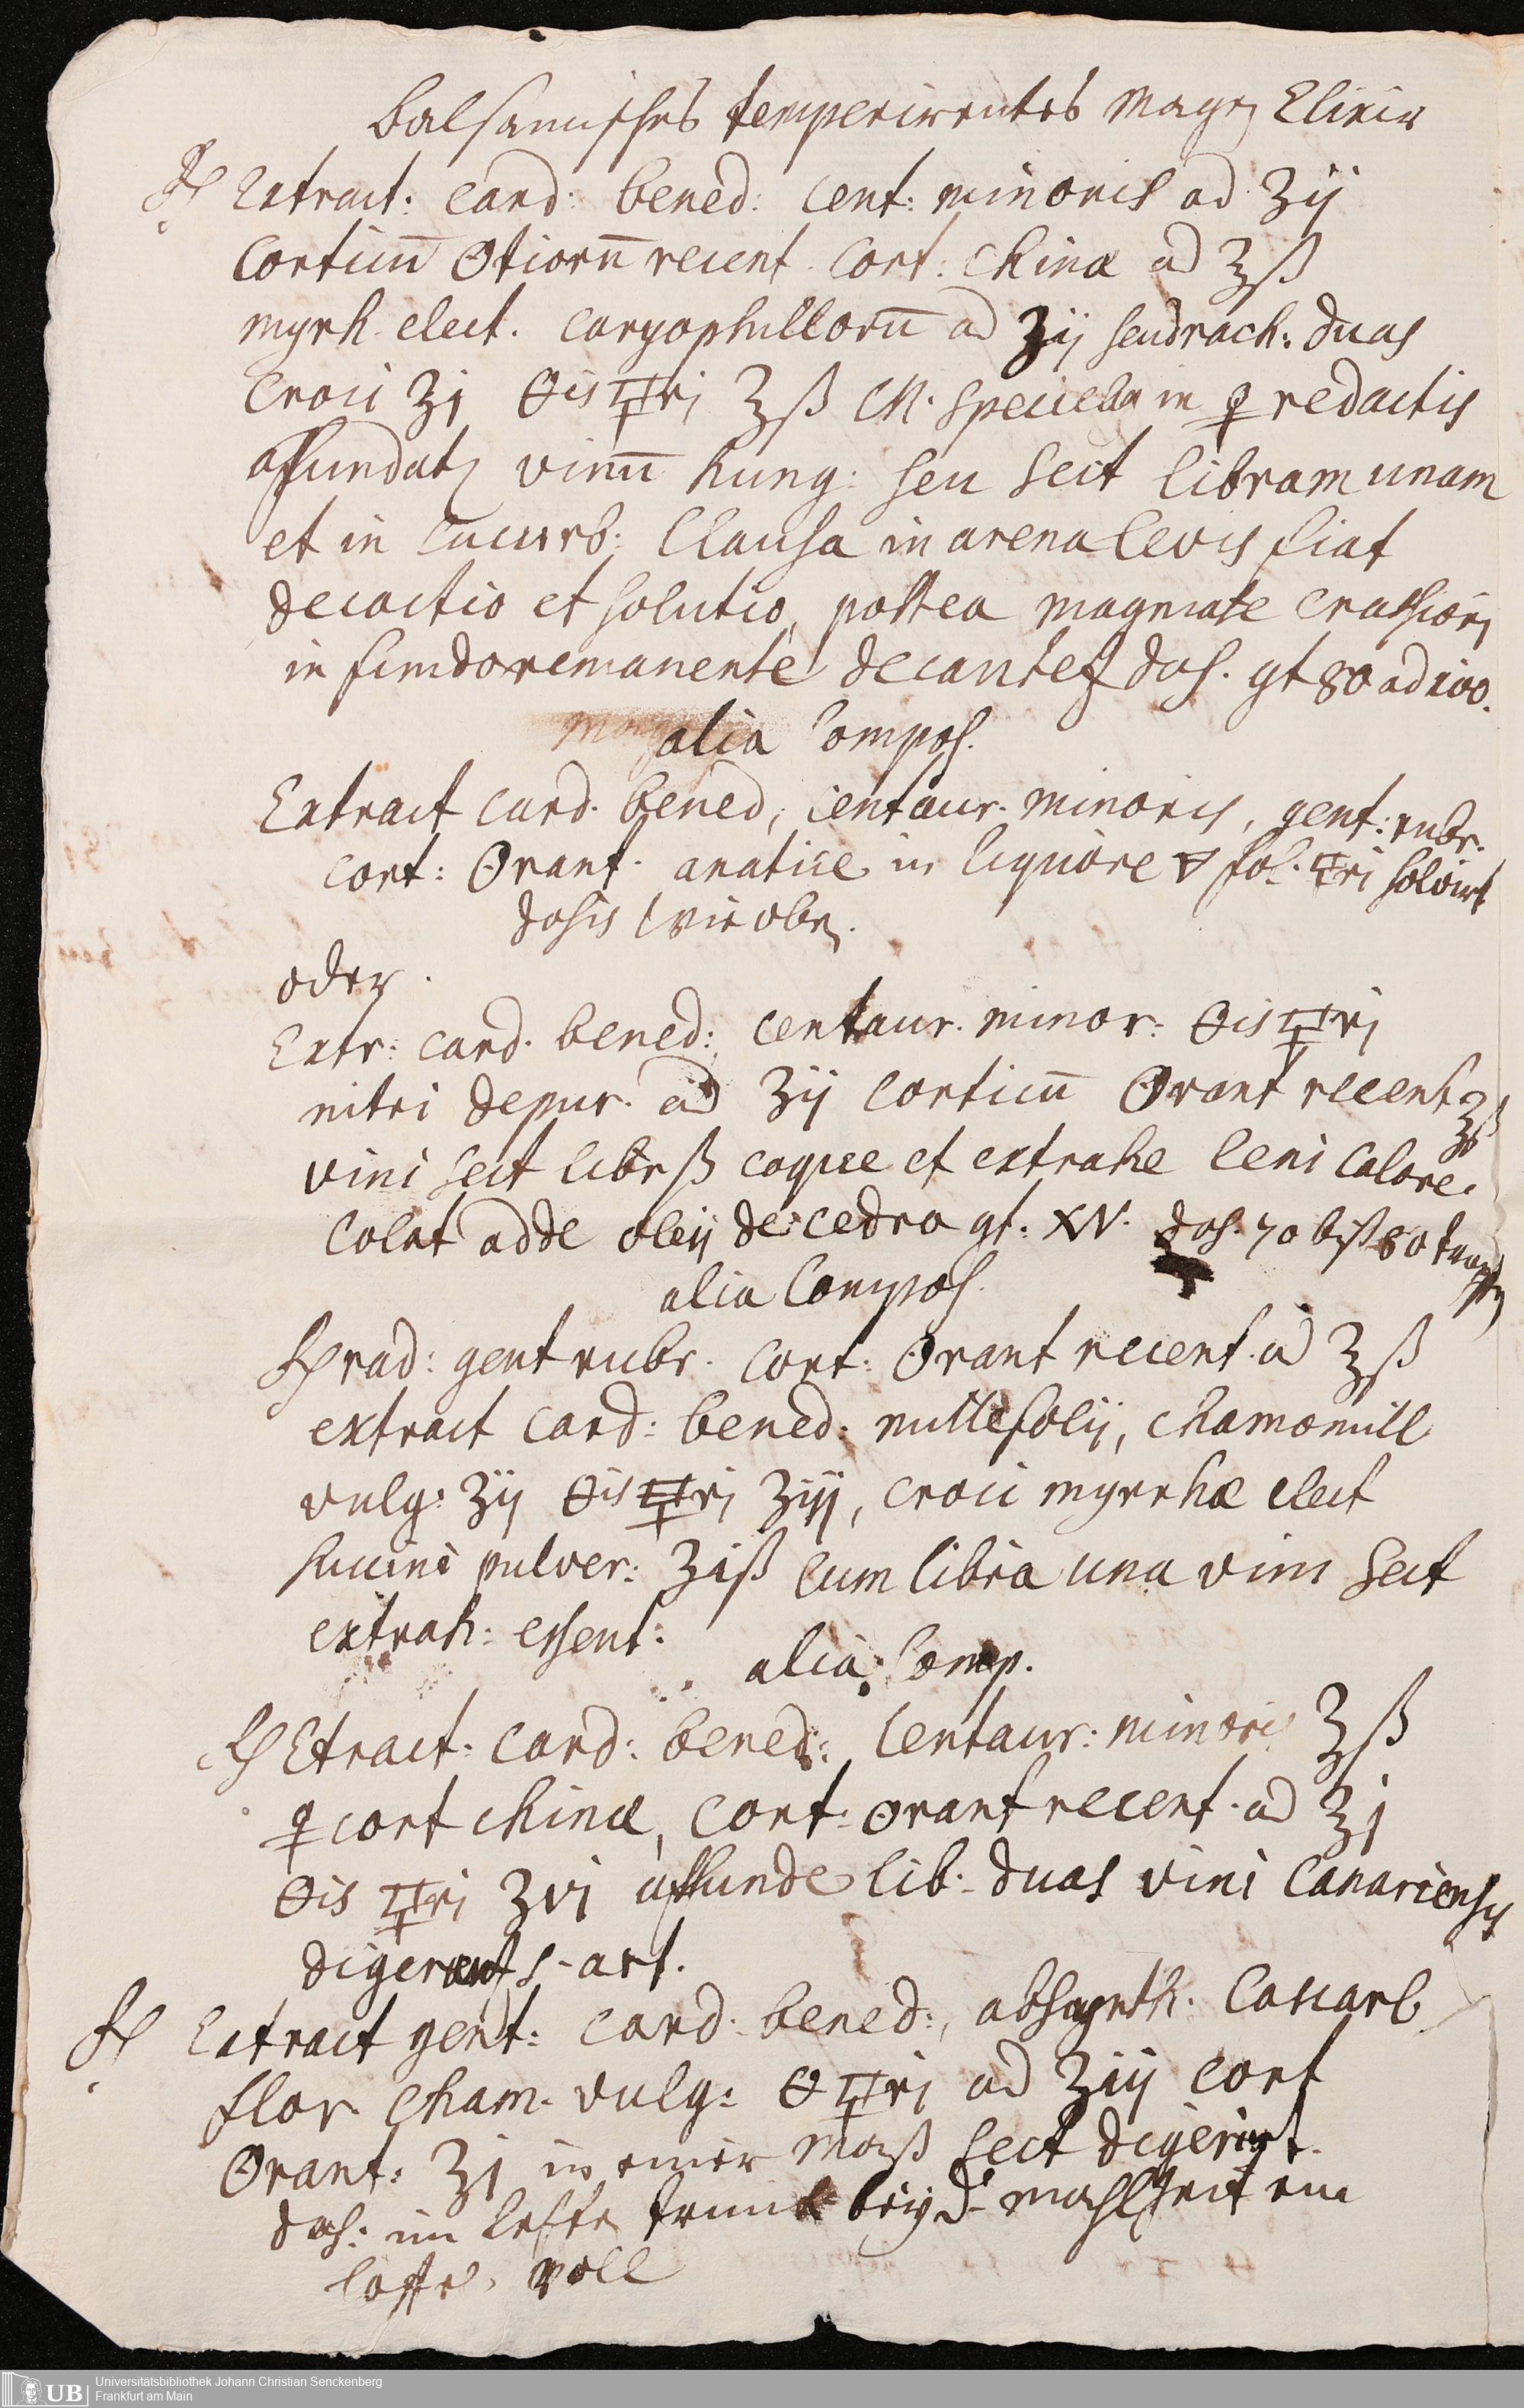 Balsamisches temperirentes Magen Elixir
℞ Extract: Card: bened: Cent: minoris ad ʒij
Corticū Otiorū recent. Cort: Chinæ ad ʒß
myrh elect. caryophillorū ad ʒij seu drach: duas
Croci ʒj 🜔is 🜿ri ʒß M. specieb in 🜍 redactis
affundatz vinū hung: seu Sect libram unam
et in Cucurb: Clausa in arena levis fiat
decoctio et solutio, postea magmate crassiori
in fundo remanente decantetz dos. gt 80 ad 100.
alia Compos.
Extract Card. bened, Centaur. minoris, gent: rubr.
cort: Orant. anatice in liquore 🜃 fol. 🜿ri solvirt
dosis wie oben.
oder.
Extr: Card. bened: Centaur. minor: 🜔is 🜿ri
nitri depur. ad ʒij Corticū Orant recent ʒß
vini Sect libr ß coque et extrahe leni Calore.
Colat adde oleij de cedro gt. XV. dos. 70 biß 80 tropfen
alia Compos.
℞ rad: gent rubr. Cort: Orant recent. ad ʒß
extract Card: bened. millefolij, Chamomill
vulg: ʒij 🜔is 🜿ri ʒiij, Croci myrrhæ elect
succini pulver: ʒiß cum libra una vini Sect
extrah: essent:
alia Comp.
℞ Etract: Card: bened: Centaur: minoris ʒß
♀ cort chinæ, Cort: Orant recent. ad ʒj
🜔is 🜿ri ʒvj affunde lib. duas vini Canariensis
digerant s. art.
℞ Extract gent: Card: bened:, absynth. Cascaril
flor. Cham. vulg: 🜔 🜿ri ad ʒiij cort
Orant: ʒj in einer Maß Sect digerirt.
dos: im ersten trunk bey d. Mahlzeit ein
loffel voll
Universitätsbibliothek Johann Christian Senckenberg
UB Frankfurt am Main